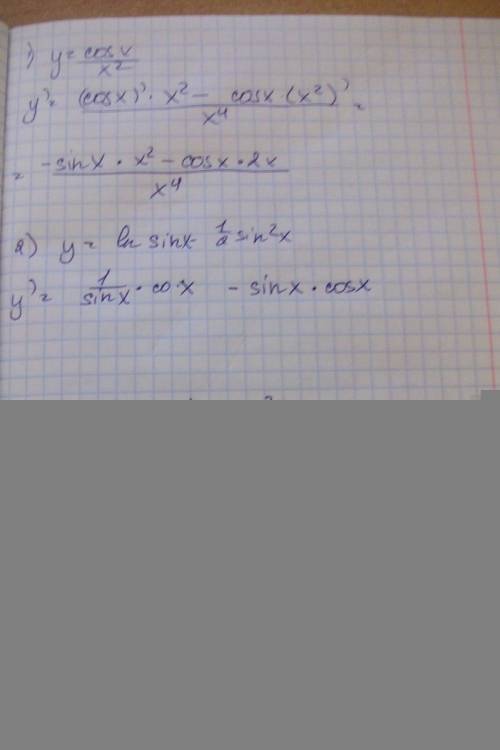 1) y = cosx / x²
y' = (cosx)' · x² - cosx (x²)' / x⁴ =
= -sinx · x² - cosx · 2x / x⁴
2) y = ln sinx - 1/2 sin²x
y' = 1/sinx · cosx - sinx · cosx